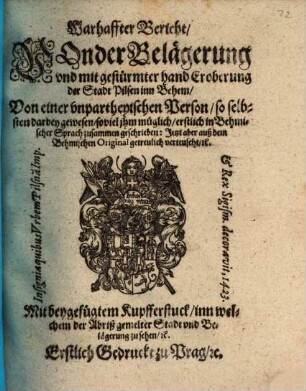 Warhaffter Bericht/
Von der Belägerung
vnd mit gestürmter hand Eroberung
der Stadt Pilsen inn Behem/
Von einer vnpartheyischen Person/ so selb-
sten darbey gewesen/ soviel jhm müglich/ erstlich in Behmi-
scher Sprach zusammen geschrieben: Jetzt aber auß dem
Behmischen Original getreulich verteuscht/ ꝛc.
Insignia quibus Vrbem Pilsnā Imp.
& Rex Sigism. decoravit, 1423.
Mit beygefügtem Kupfferstuck/ inn wel-
chem der Abriß gemelter Stadt vnd Be-
lägerung zu sehen/ ꝛc.
Erstlich Gedruckt zu Prag/ ꝛc.